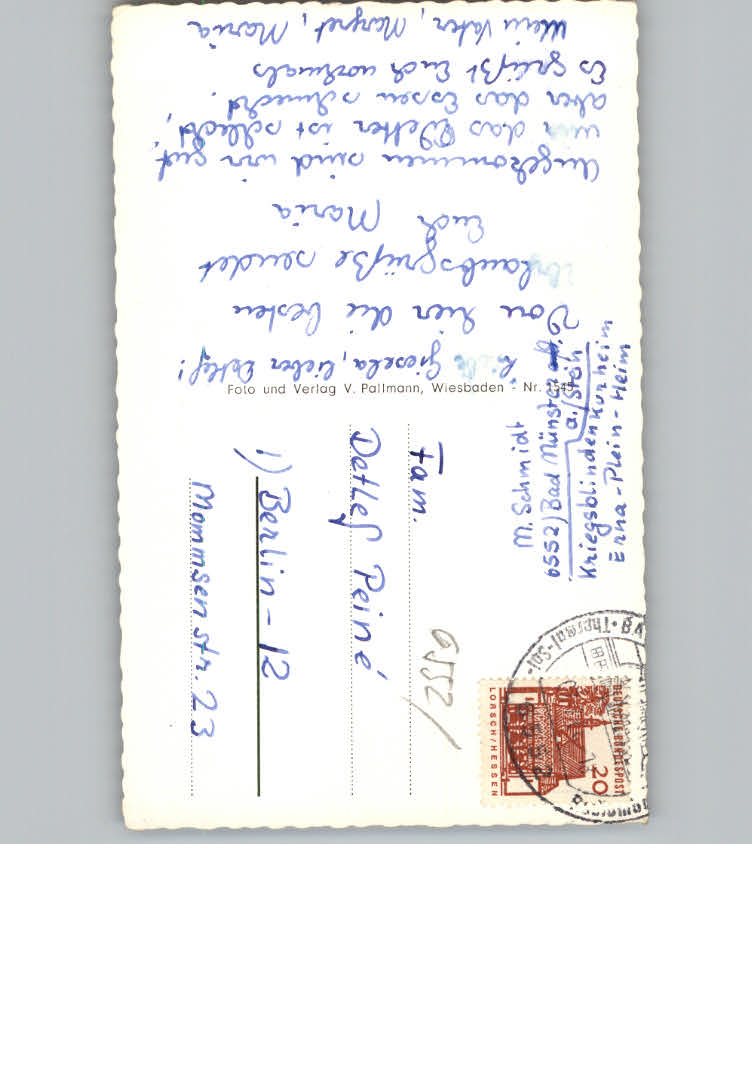 Liebe Giesela, lieber Detlef!
Von hier die besten
Urlaubsgrüße sendet
Euch Maria
Angekommen sind wir gut
nur das Wetter ist schlecht,
aber das Essen schmeckt.
Es grüßt Euch nochmals
Mein Vater, Margret, Maria
Foto und Verlag V. Pallmann, Wiesbaden - Nr. 1545
M. Schmidt
6552) Bad Münster
a./Stein
Kriegsblindenkurheim
Erna-Plein-Heim
Fam.
Detlef Peiné
1) Berlin-12
Mommsenstr. 23
DEUTSCHE BUNDESPOST
20
LORSCH/HESSEN
Thermal-Sol-